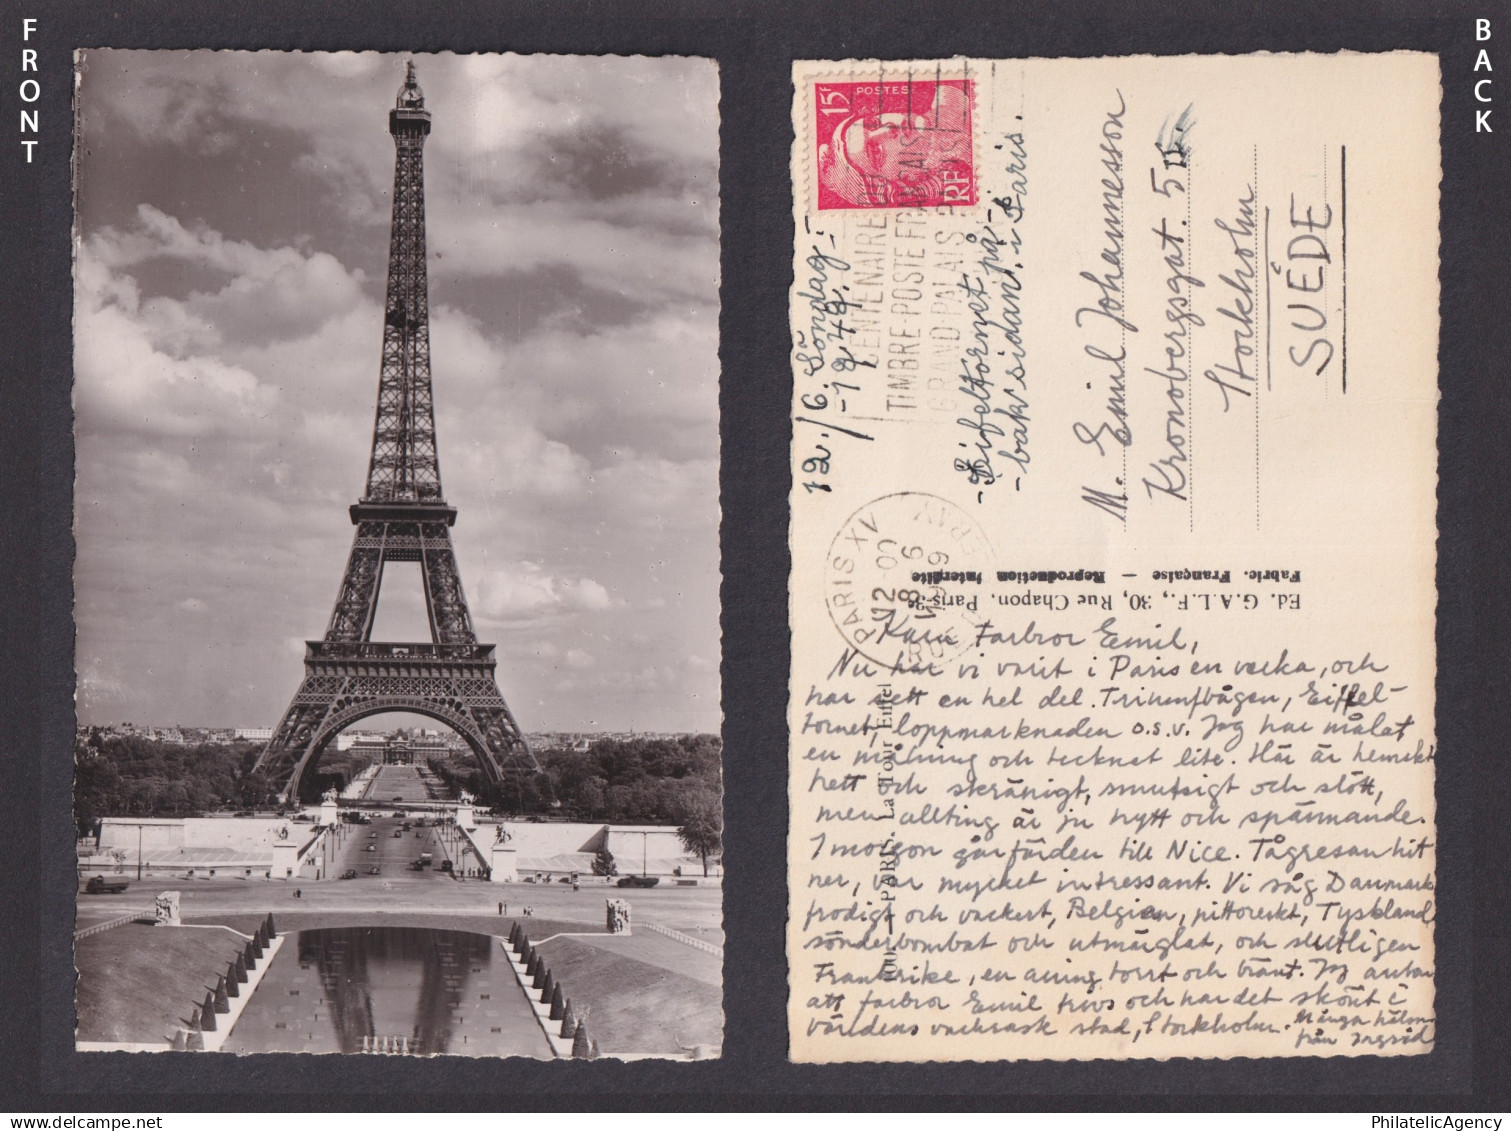 FRONT
BACK
POSTES
15F
RF
CENTENAIRE DU
TIMBRE-POSTE FRANÇAIS
GRAND PALAIS
12./6. Söndag -
- 1949. -
- Eifeltornet på -
- baksidan, i Paris.
M. Emil Johannesson
Kronobergsgat. 5
Stockholm
SUÉDE
PARIS XV
12-00
8 6
1949
Ed. G.A.L.F., 30, Rue Chapon, Paris-3e
Fabric. Française — Reproduction interdite
100. — PARIS. La Tour Eiffel
Kära Farbror Emil,
Nu har vi varit i Paris en vecka, och
har sett en hel del. Triumfbågen, Eiffel-
tornet, loppmarknaden o.s.v. Jag har målat
en målning och tecknat lite. Här är hemskt
hett och skränigt, smutsigt och stött,
men allting är ju nytt och spännande.
I morgon går färden till Nice. Tågresan hit
ner, var mycket intressant. Vi såg Danmark
frodigt och vackert, Belgien, pittoreskt, Tyskland
sönderbombat och utmärglat, och slutligen
Frankrike, en aning torrt och bränt. Jag antar
att farbror Emil trivs och har det skönt i
världens vackraste stad, Stockholm. Många hälsn.
från Ingrid
PhilatelicAgency